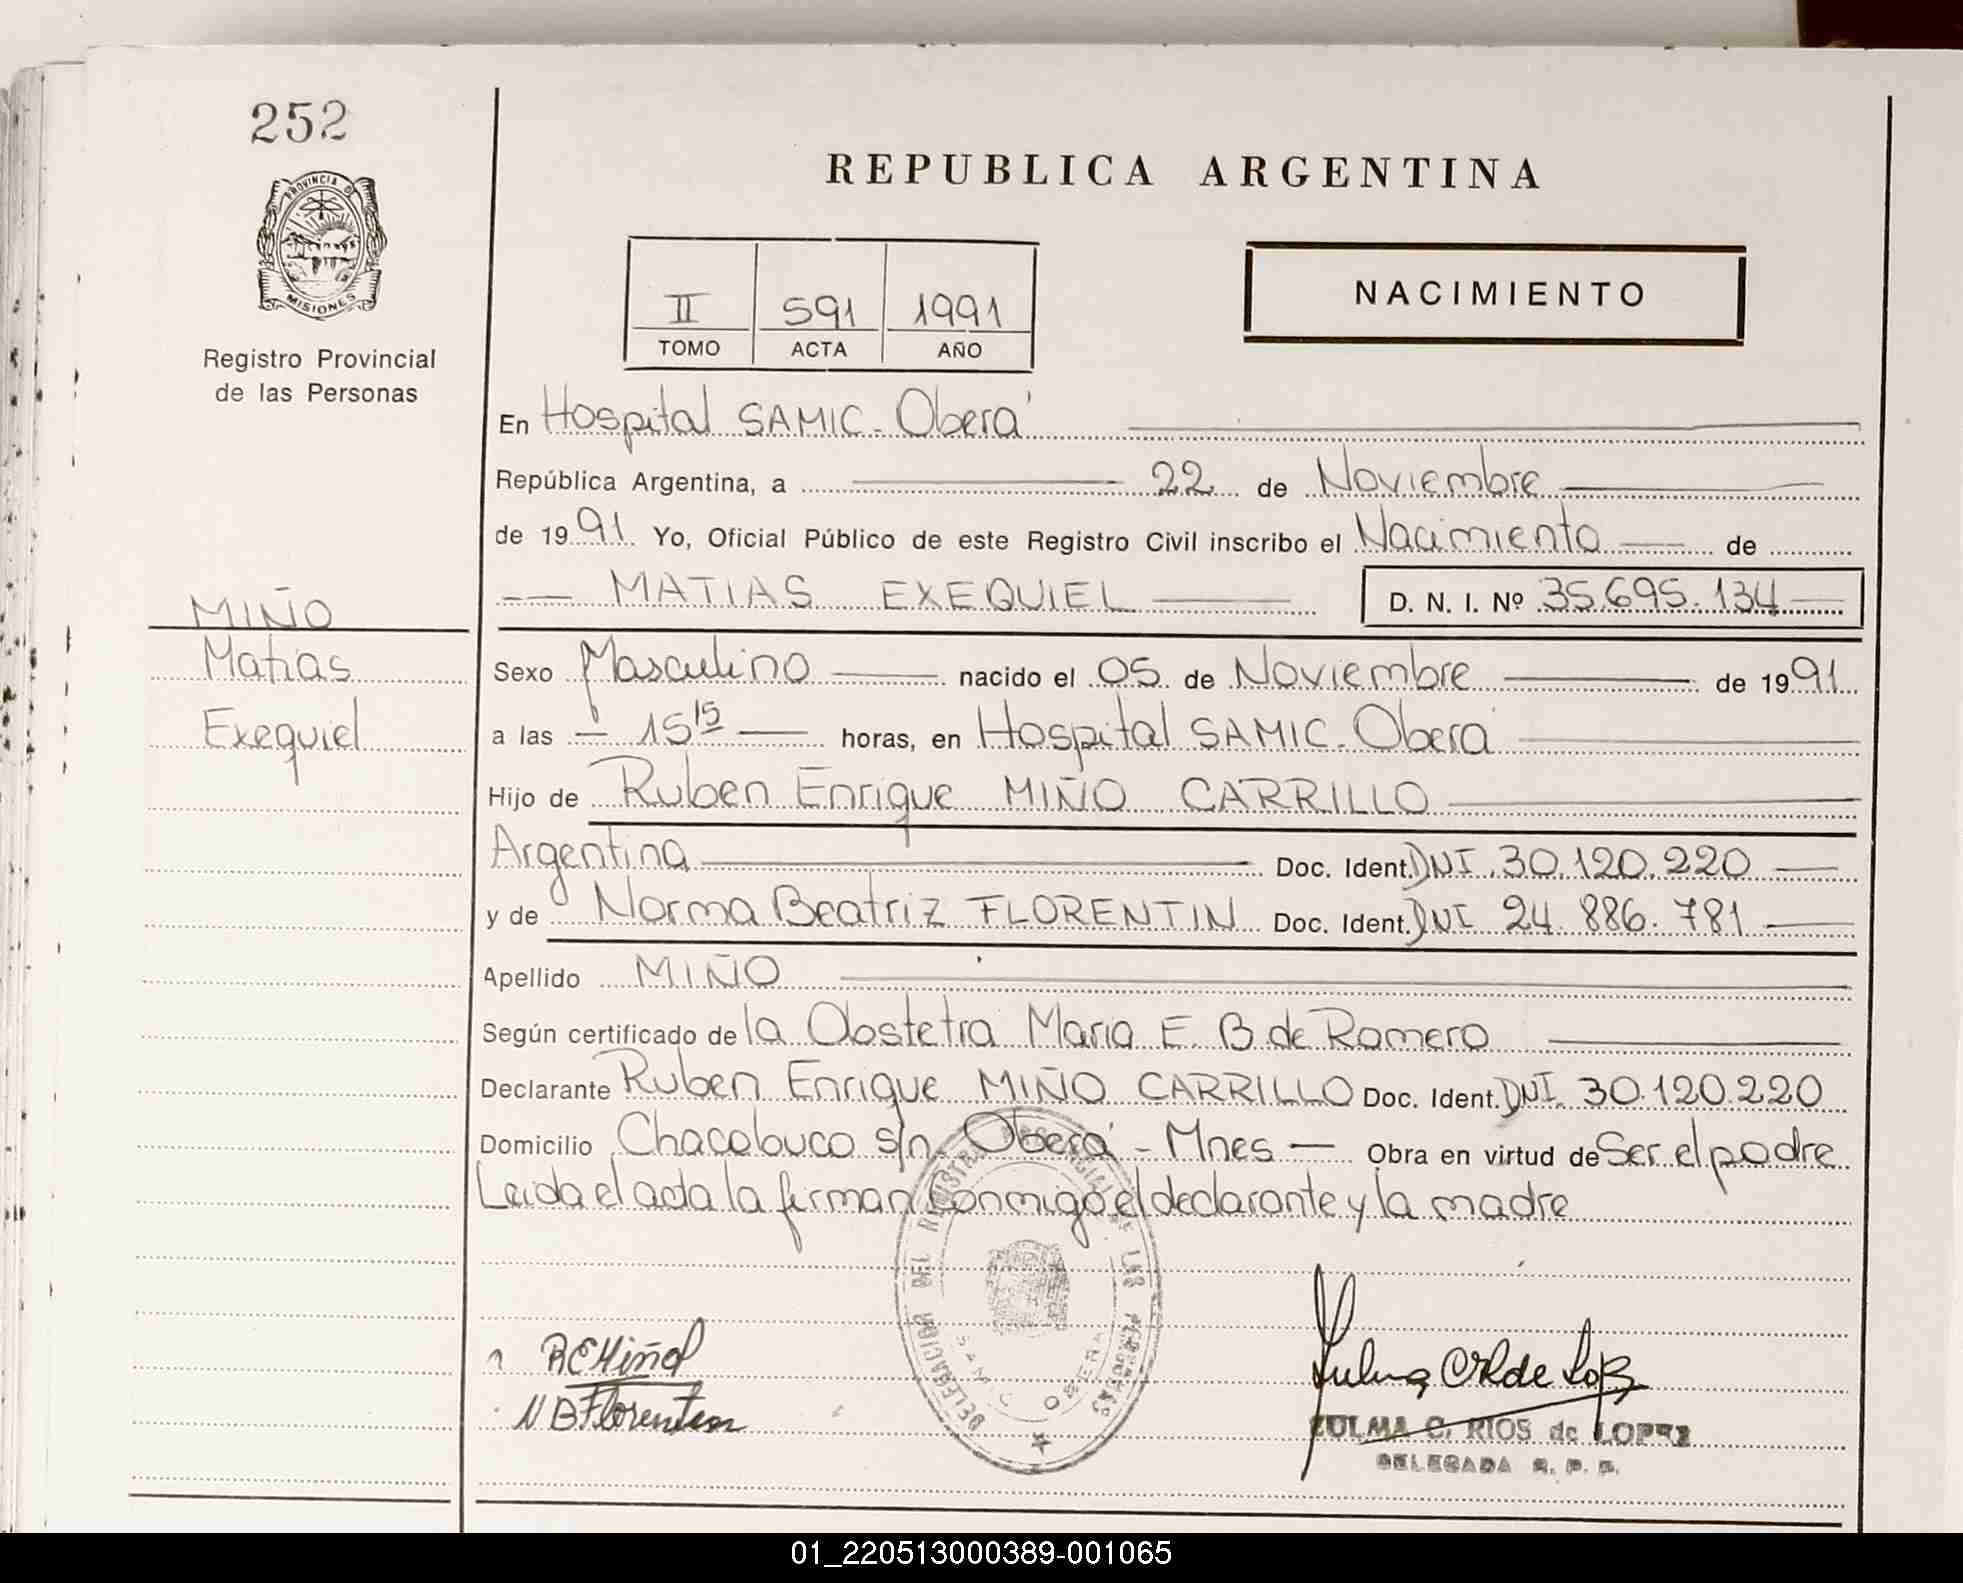 252
PROVINCIA DE
MISIONES
Registro Provincial
de las Personas
MIÑO
Matias
Exequiel
REPUBLICA ARGENTINA
II 591 1991
TOMO ACTA AÑO
NACIMIENTO
En Hospital SAMIC - Oberá
República Argentina, a 22 de Noviembre
de 1991 Yo, Oficial Público de este Registro Civil inscribo el Nacimiento de
MATIAS EXEQUIEL D. N. I. Nº 35.695.134
Sexo Masculino nacido el 05 de Noviembre de 1991
a las 15 15 horas, en Hospital SAMIC - Oberá
Hijo de Ruben Enrique MIÑO CARRILLO
Argentina Doc. Ident. DNI. 30.120.220
y de Norma Beatriz FLORENTIN Doc. Ident. DNI 24.886.781
Apellido MIÑO
Según certificado de la Obstetra Maria E. B de Romero
Declarante Ruben Enrique MIÑO CARRILLO Doc. Ident. DNI. 30.120.220
Domicilio Chacabuco s/n. Oberá - Mnes - Obra en virtud de Ser el padre
Leida el acta la firman conmigo el declarante y la madre
DELEGACION DEL REGISTRO PROVINCIAL DE LAS PERSONAS
SAMIC OBERA
RE Miño
N B Florentin
ZULMA C. RIOS de LOPEZ
DELEGADA R. P. P.
01_220513000389-001065